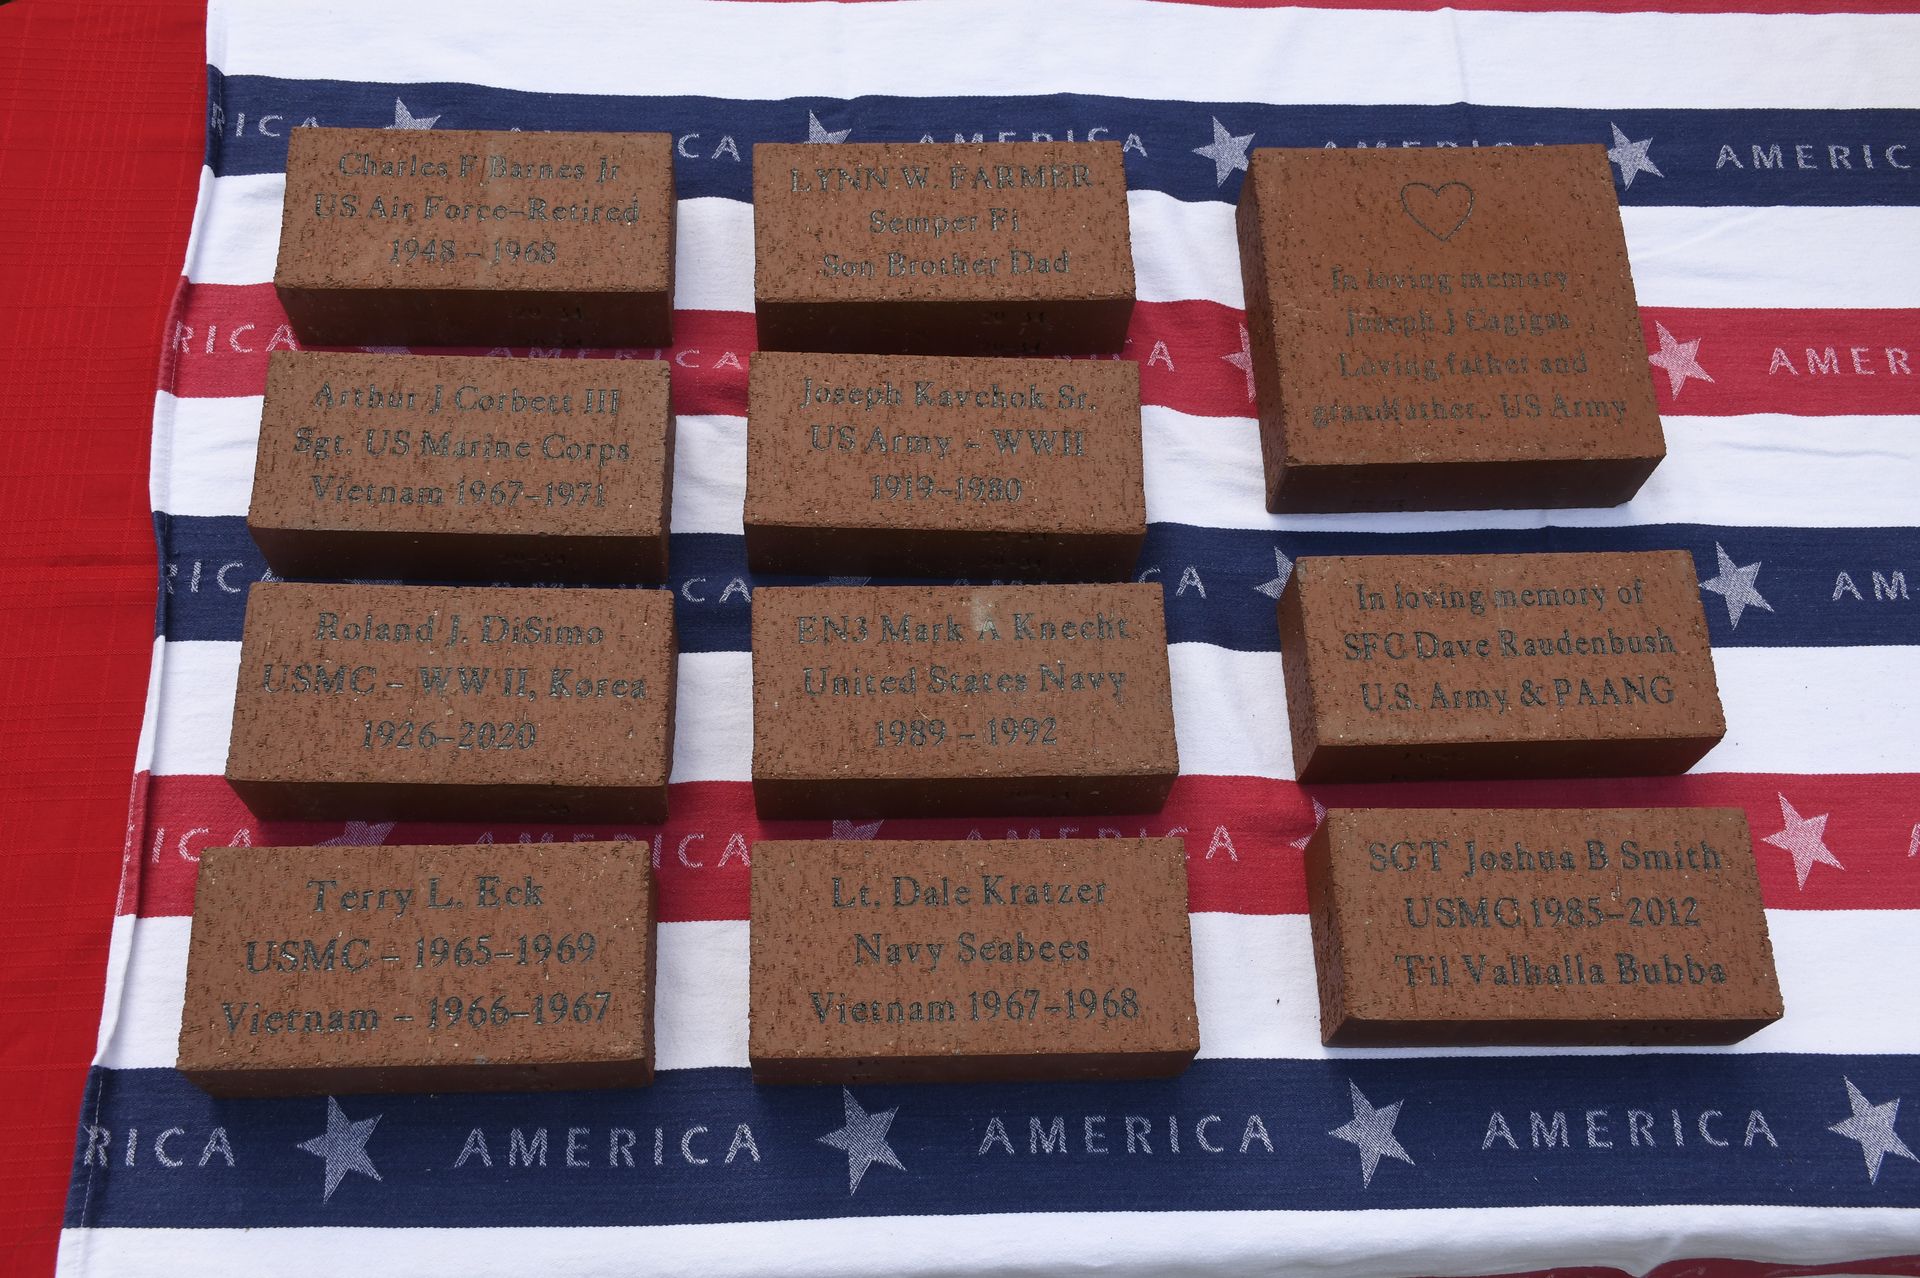 RICA AMERICA AMERICA AMERICA AMERIC
Charles F Barnes Jr
US Air Force-Retired
1948 - 1968
LYNN W. FARMER
Semper Fi
Son Brother Dad
In loving memory
Joseph J Cagigas
Loving father and
grandfather, US Army
RICA AMERICA AMER
Arthur J Corbett III
Sgt. US Marine Corps
Vietnam 1967-1971
Joseph Kavchok Sr.
US Army - WWII
1919-1980
RICA AM
Roland J. DiSimo
USMC - WW II, Korea
1926-2020
EN3 Mark A Knecht
United States Navy
1989 - 1992
In loving memory of
SFC Dave Raudenbush
U.S. Army & PAANG
RICA AMERICA AMERICA
Terry L. Eck
USMC - 1965-1969
Vietnam - 1966-1967
Lt. Dale Kratzer
Navy Seabees
Vietnam 1967-1968
SGT Joshua B Smith
USMC 1985-2012
Til Valhalla Bubba
RICA AMERICA AMERICA AMERICA